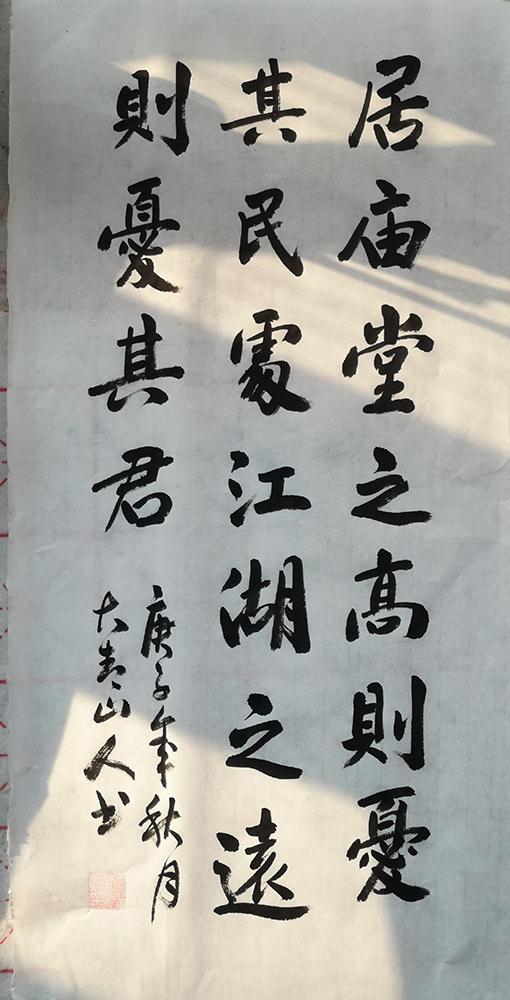 居庙堂之高則憂
其民處江湖之遠
則憂其君
庚子年秋月
大青山人书